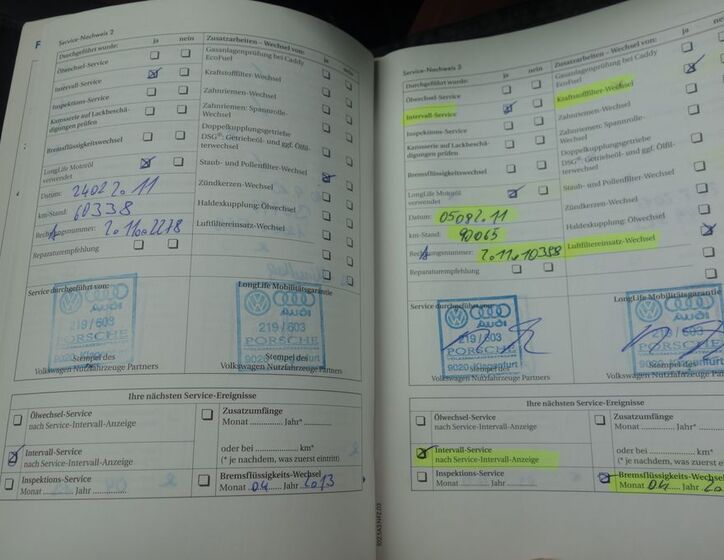 F
Service-Nachweis 2
Durchgeführt wurde: ja nein
Ölwechsel-Service
Intervall-Service
Inspektions-Service
Karosserie auf Lackbeschä-
digungen prüfen
Bremsflüssigkeitswechsel
LongLife Motoröl
verwendet
Datum: 24022011
km-Stand: 60338
Rechnungsnummer:
Reparaturempfehlung
Zusatzarbeiten – Wechsel von: ja nein
Gasanlagenprüfung bei Caddy
EcoFuel
Kraftstofffilter-Wechsel
Zahnriemen-Wechsel
Zahnriemen: Spannrolle-
Wechsel
Doppelkupplungsgetriebe
DSG®: Getriebeöl- und ggf. Ölfil-
terwechsel
Staub- und Pollenfilter-Wechsel
Zündkerzen-Wechsel
Haldexkupplung: Ölwechsel
Luftfiltereinsatz-Wechsel
Service durchgeführt von:
LongLife Mobilitätsgarantie
Audi
219 / 603
PORSCHE
9020
Stempel des
Volkswagen Nutzfahrzeuge Partners
Audi
219 / 603
PORSCHE
9020
Stempel des
Volkswagen Nutzfahrzeuge Partners
Ihre nächsten Service-Ereignisse
Ölwechsel-Service
nach Service-Intervall-Anzeige
Intervall-Service
nach Service-Intervall-Anzeige
Inspektions-Service
Monat Jahr
Zusatzumfänge
Monat Jahr*
oder bei km*
(* je nachdem, was zuerst eintritt)
Bremsflüssigkeits-Wechsel
Monat 04 Jahr 2013
Service-Nachweis 3
Durchgeführt wurde: ja nein
Ölwechsel-Service
Intervall-Service
Inspektions-Service
Karosserie auf Lackbeschä-
digungen prüfen
Bremsflüssigkeitswechsel
LongLife Motoröl
verwendet
Datum: 05092011
km-Stand: 90065
Rechnungsnummer:
Reparaturempfehlung
Zusatzarbeiten – Wechsel von:
Gasanlagenprüfung bei Caddy
EcoFuel
Kraftstofffilter-Wechsel
Zahnriemen-Wechsel
Zahnriemen: Spannrolle-
Wechsel
Doppelkupplungsgetriebe
DSG®: Getriebeöl- und ggf. Ölfil-
terwechsel
Staub- und Pollenfilter-Wechsel
Zündkerzen-Wechsel
Haldexkupplung: Ölwechsel
Luftfiltereinsatz-Wechsel
Service durchgeführt von:
LongLife Mobilitätsgarantie
Audi
219 / 603
PORSCHE
9020 Klagenfurt
Stempel des
Volkswagen Nutzfahrzeuge Partners
Audi
219 / 603
PORSCHE
9020 Klagenfurt
Stempel des
Volkswagen Nutzfahrzeuge Partners
Ihre nächsten Service-Ereignisse
Ölwechsel-Service
nach Service-Intervall-Anzeige
Intervall-Service
nach Service-Intervall-Anzeige
Inspektions-Service
Monat Jahr
Zusatzumfänge
Monat Jahr*
oder bei km*
(* je nachdem, was zuerst
Bremsflüssigkeits-Wechsel
Monat 04 Jahr